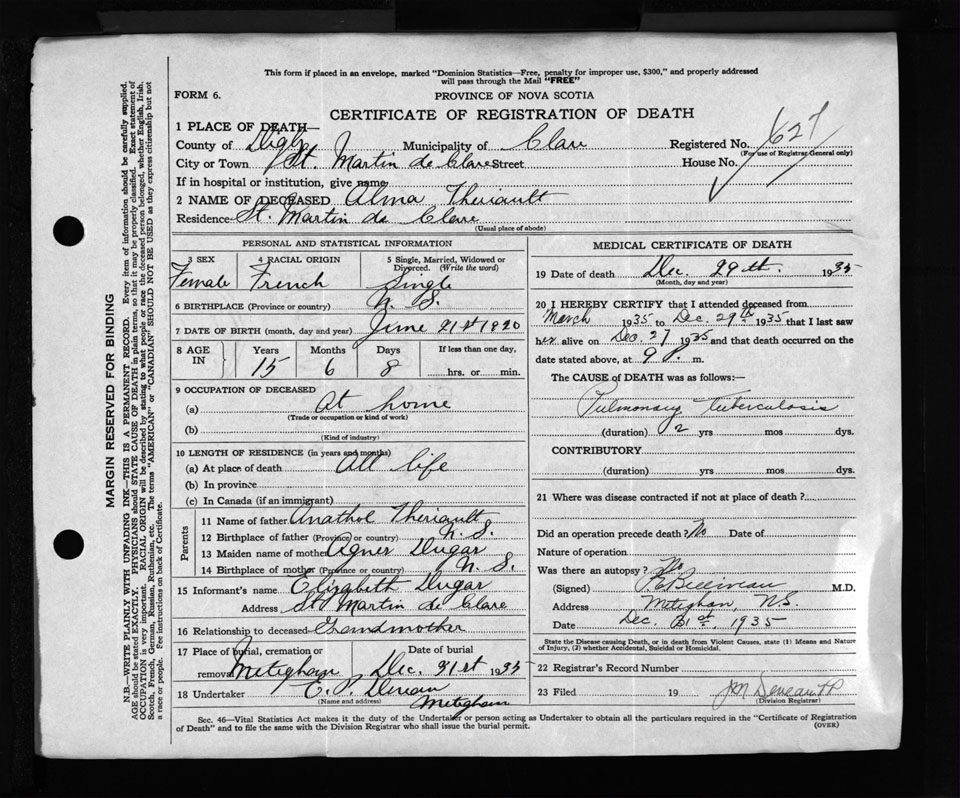 This form if placed in an envelope, marked "Dominion Statistics—Free, penalty for improper use, $300," and properly addressed
will pass through the Mail "FREE"
FORM 6.
PROVINCE OF NOVA SCOTIA
CERTIFICATE OF REGISTRATION OF DEATH
1 PLACE OF DEATH—
County of Digby Municipality of Clare Registered No. 627
(For use of Registrar General only)
City or Town St. Martin de Clare Street House No.
If in hospital or institution, give name
2 NAME OF DECEASED Alma Theriault
Residence St. Martin de Clare
(Usual place of abode)
PERSONAL AND STATISTICAL INFORMATION
3 SEX
Female
4 RACIAL ORIGIN
French
5 Single, Married, Widowed or
Divorced. (Write the word)
Single
6 BIRTHPLACE (Province or country) N. S.
7 DATE OF BIRTH (month, day and year) June 21st 1920
8 AGE IN Years Months Days If less than one day,
15 6 8 hrs. or min.
9 OCCUPATION OF DECEASED
(a) At home
(Trade or occupation or kind of work)
(b)
(Kind of industry)
10 LENGTH OF RESIDENCE (in years and months)
(a) At place of death All life
(b) In province
(c) In Canada (if an immigrant)
Parents
11 Name of father Anathol Theriault
12 Birthplace of father (Province or country) N. S.
13 Maiden name of mother Agner Dugar
14 Birthplace of mother (Province or country) N. S.
15 Informant's name Elizabeth Dugar
Address St Martin de Clare
16 Relationship to deceased Grandmother
17 Place of burial, cremation or Date of burial
removal Meteghan Dec. 31st 1935
18 Undertaker
(Name and address) Meteghan
MEDICAL CERTIFICATE OF DEATH
19 Date of death Dec. 29th. 1935
(Month, day and year)
20 I HEREBY CERTIFY that I attended deceased from
March 1935 to Dec. 29th 1935 that I last saw
her alive on Dec 27 1935 and that death occurred on the
date stated above, at 9 P. m.
The CAUSE of DEATH was as follows:—
Pulmonary tuberculosis
(duration) 2 yrs mos dys.
CONTRIBUTORY
(duration) yrs mos dys.
21 Where was disease contracted if not at place of death?
Did an operation precede death? No Date of
Nature of operation
Was there an autopsy? No
(Signed) Belliveau M.D.
Address Meteghan N.S.
Date Dec. 31st. 1935
State the Disease causing Death, or in death from Violent Causes, state (1) Means and Nature
of Injury, (2) whether Accidental, Suicidal or Homicidal.
22 Registrar's Record Number
23 Filed 19
(Division Registrar)
Sec. 46—Vital Statistics Act makes it the duty of the Undertaker or person acting as Undertaker to obtain all the particulars required in the "Certificate of Registration
of Death" and to file the same with the Division Registrar who shall issue the burial permit.
(OVER)
MARGIN RESERVED FOR BINDING
N.B.—WRITE PLAINLY WITH UNFADING INK—THIS IS A PERMANENT RECORD. Every item of information should be carefully supplied.
AGE should be stated EXACTLY. PHYSICIANS should STATE CAUSE OF DEATH in plain terms, so that it may be properly classified. Exact statement of
OCCUPATION is very important. RACIAL ORIGIN will be described by stating to what people or race the deceased person belonged, whether English, Irish,
Scotch, French, German, Russian, Ruthenian, etc. The terms "AMERICAN" or "CANADIAN" SHOULD NOT BE USED as they express citizenship but not
a race or people. See instructions on back of Certificate.